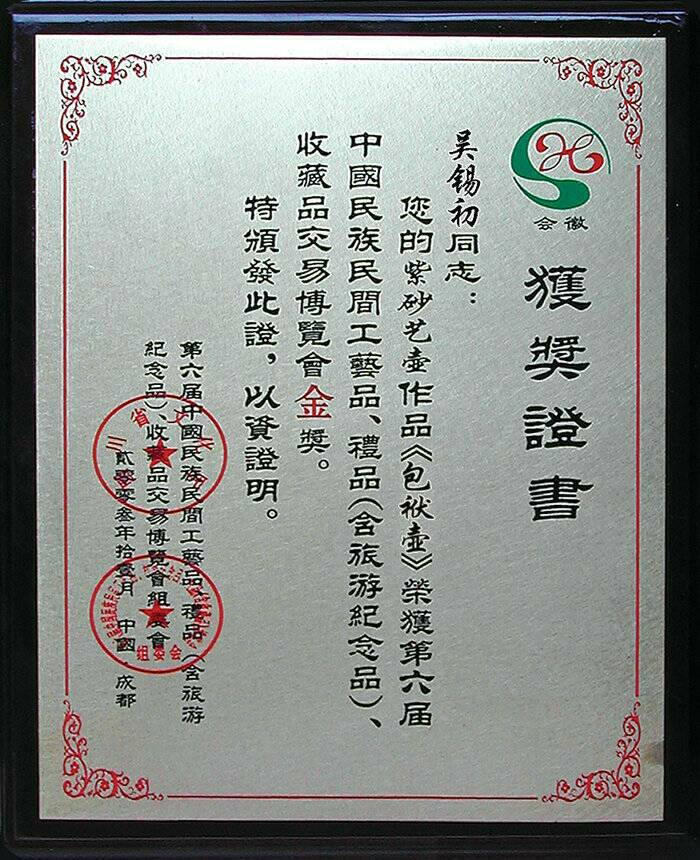 会徽
獲獎證書
吴锡初同志：
您的紫砂艺壶作品《包袱壶》榮獲第六届
中國民族民間工藝品、禮品(含旅游紀念品)、
收藏品交易博覽會金獎。
特頒發此證，以資證明。
第六届中國民族民間工藝品、禮品(含旅游
紀念品)、收藏品交易博覽會組委會
貳零零叁年拾壹月 中國·成都
组委会